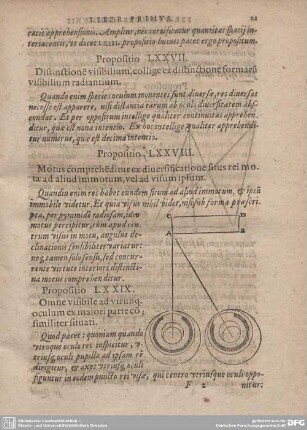 LIBER PRIMVS. 22
cacis apprehensionis. Amplius, nec certificatur quantitas spacij in-
teriacentis, ut docet LXIII. propositio huius: patet ergo propositum.
Propositio LXXVII.
Distinctionē visibilium, collige ex distinctione formarū
visibilium radiantium.
Quando enim species oculum mouentes sunt diuersæ, res diuersas
necesse est apparere, nisi distantia earum ab oculo diuersitatem abs-
condat. Et per oppositum intellige qualiter continuitas apprehen-
ditur, quæ est nona intentio. Ex hoc intellige qualiter apprehendi-
tur numerus, quæ est decima intentio.
Propositio LXXVIII.
Motus comprehēditur ex diuersificatione situs rei mo-
tæ ad aliud immotum, vel ad visum ipsum.
Quandiu enim rei habet eundem situm ad aliud immotum, & ipsū
immobile videtur. Et quia visus nihil videt, nisi sub forma præscri-
pta, per pyramidē radiosam, ideo
motus percipitur, cum apud cen-
trum visus in motu, angulus de-
clinationis sensibiliter variatur:
neq; tamen solo sensu, sed concur-
rente virtute interiori distincti-
ua motus comprehenditur.
C D
A B
Propositio LXXIX.
Omne visibile ad vtrunq;
oculum ex maiori parte cō
similiter situari.
Quod patet: quoniam quando
vtroque oculo res inspicitur, v-
triusq; oculi pupilla ad ipsam rē
dirigitur, & axes vtriusq; oculi
figuntur in eodem puncto rei visæ, qui centro vtriusque oculi oppo-
F 2 nitur: